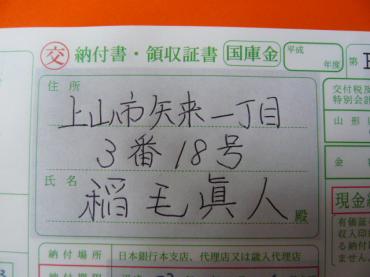 交 納付書・領収証書 国庫金 平成 年度 第
住所
上山市矢来一丁目
3番18号
氏名
稲毛眞人 殿
納付場所 日本銀行本支店、代理店又は歳入代理店
納付期限
交付税及
特別会計
山形
金
現金
有価証
収入印
は納め
ません